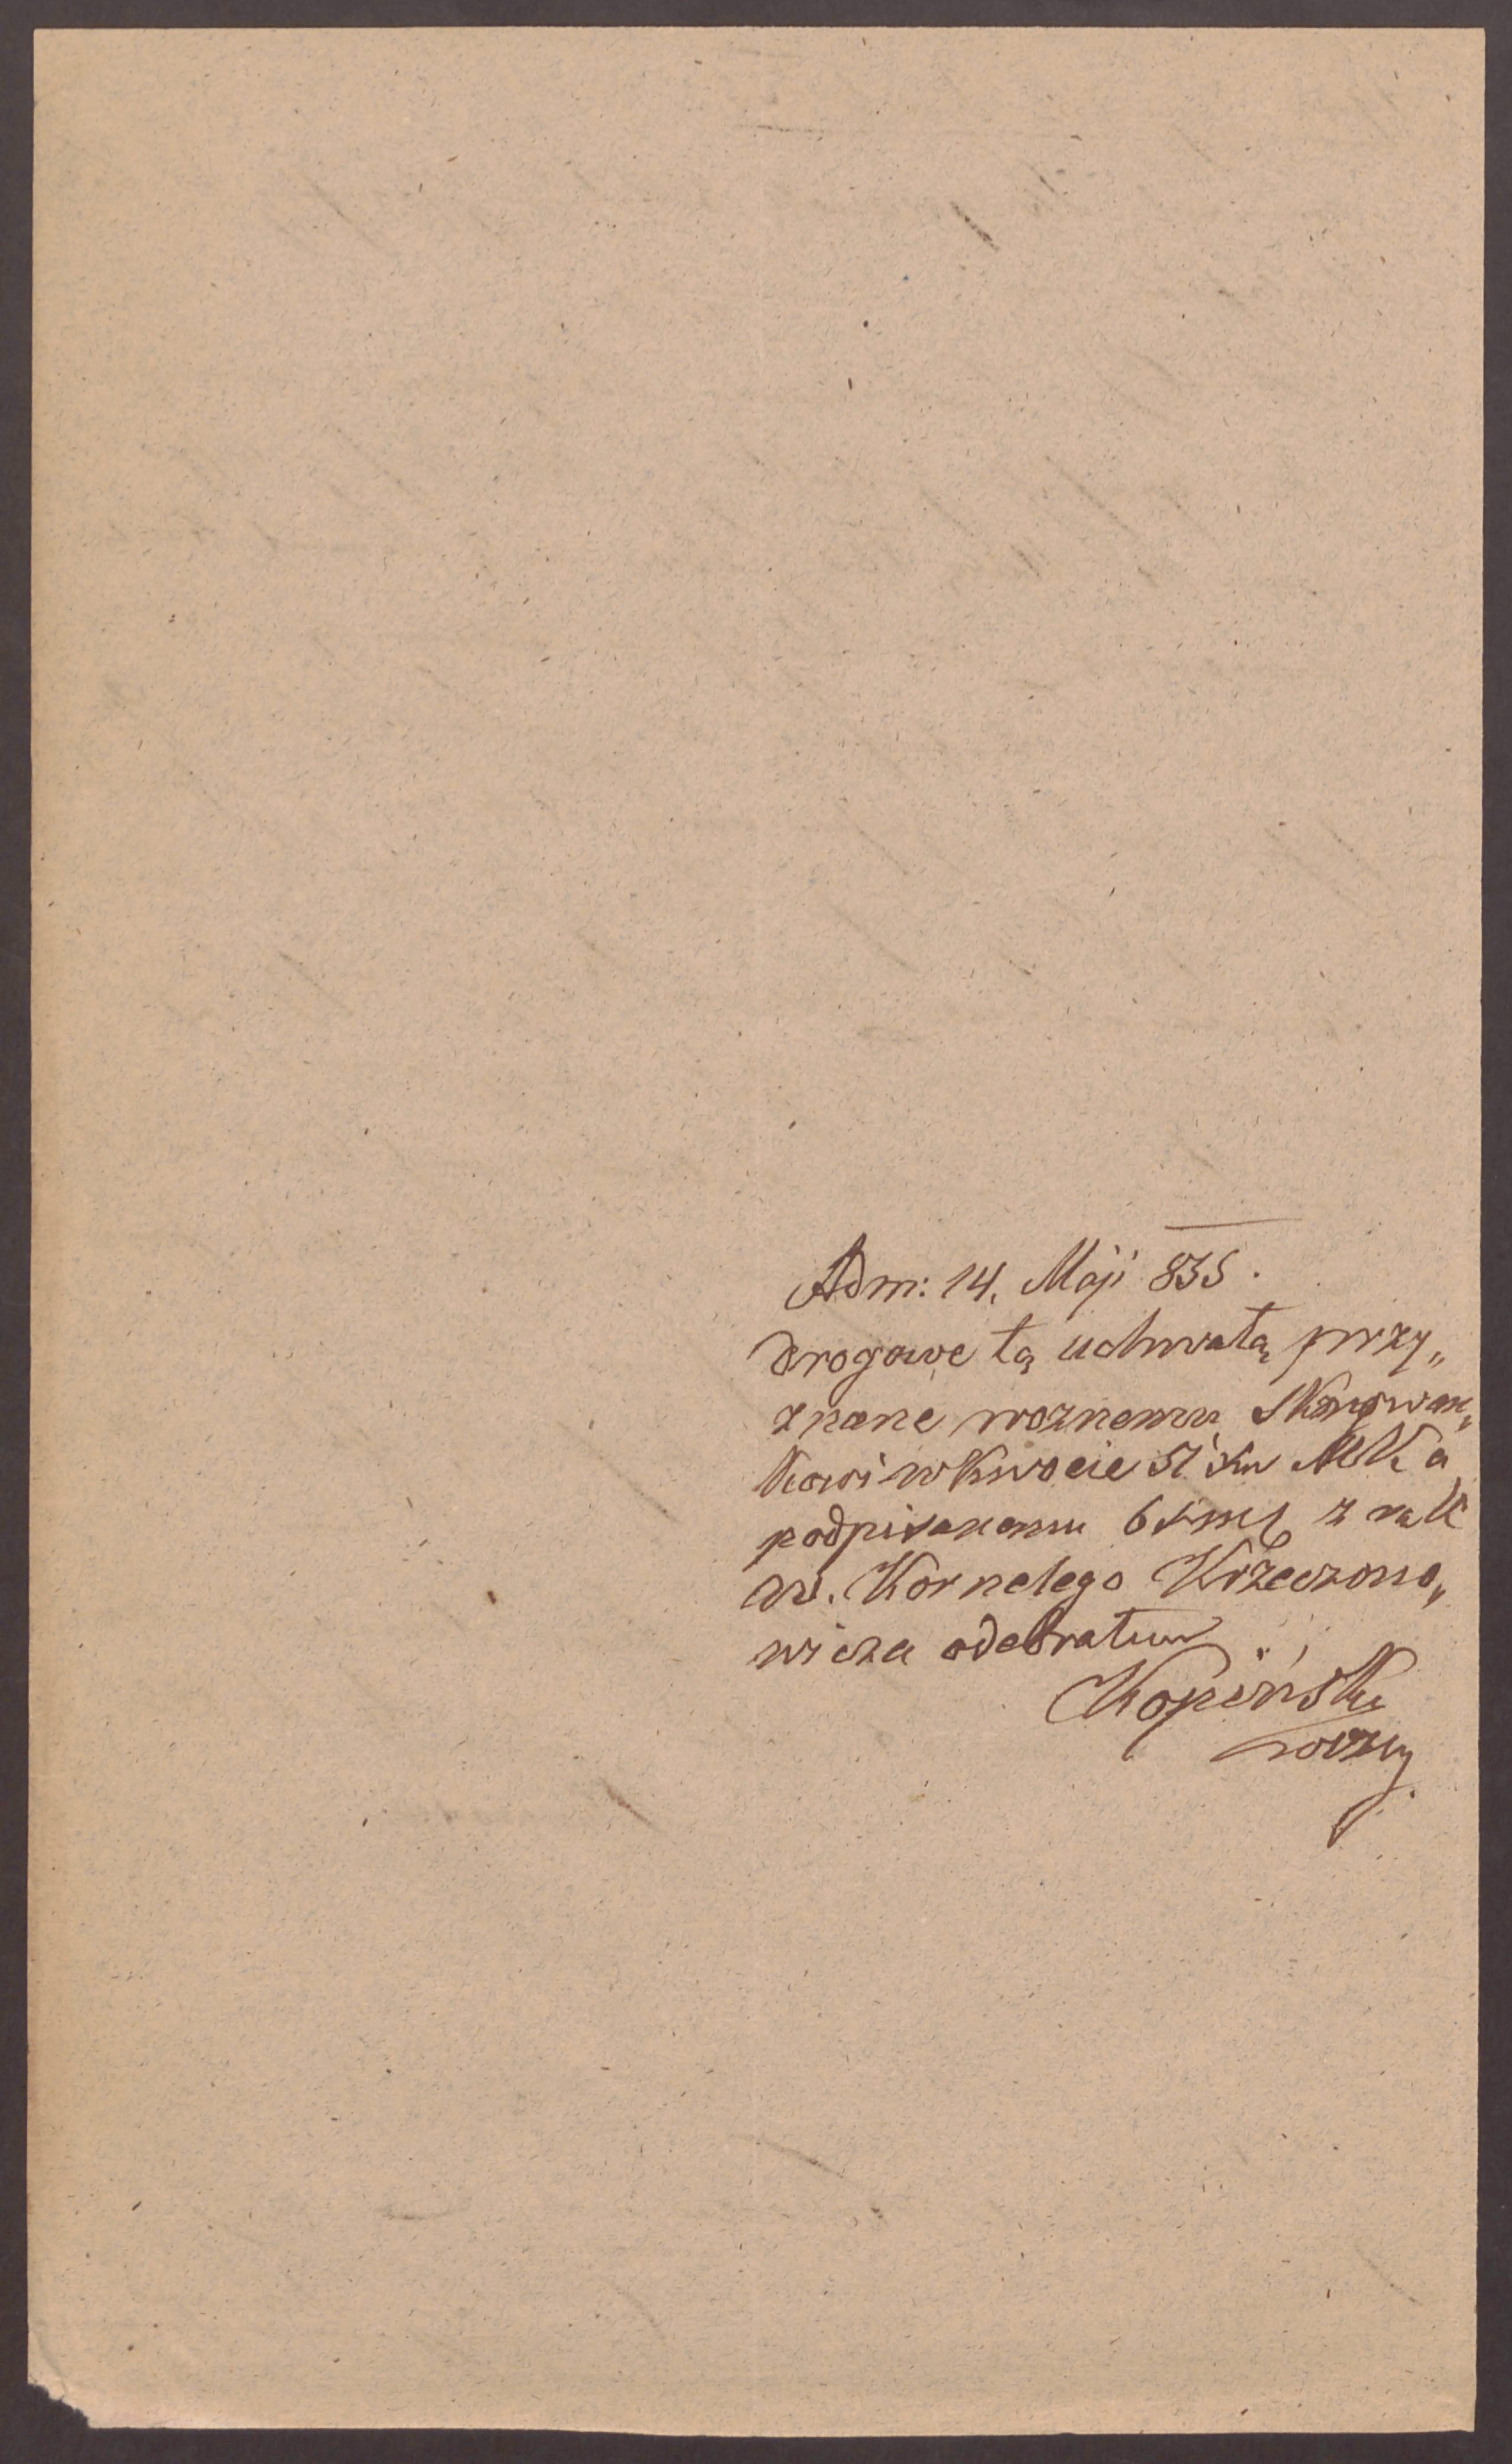 Adm: 14. Maji 835.
drogowe tą uchwałą przy„
znane woznemu
kowi w kwocie 51 kr MK a
podpisanemu 6 z rąk
W. Kornelego Krzeczono„
wicza odebrałem
Kopiński
wozny